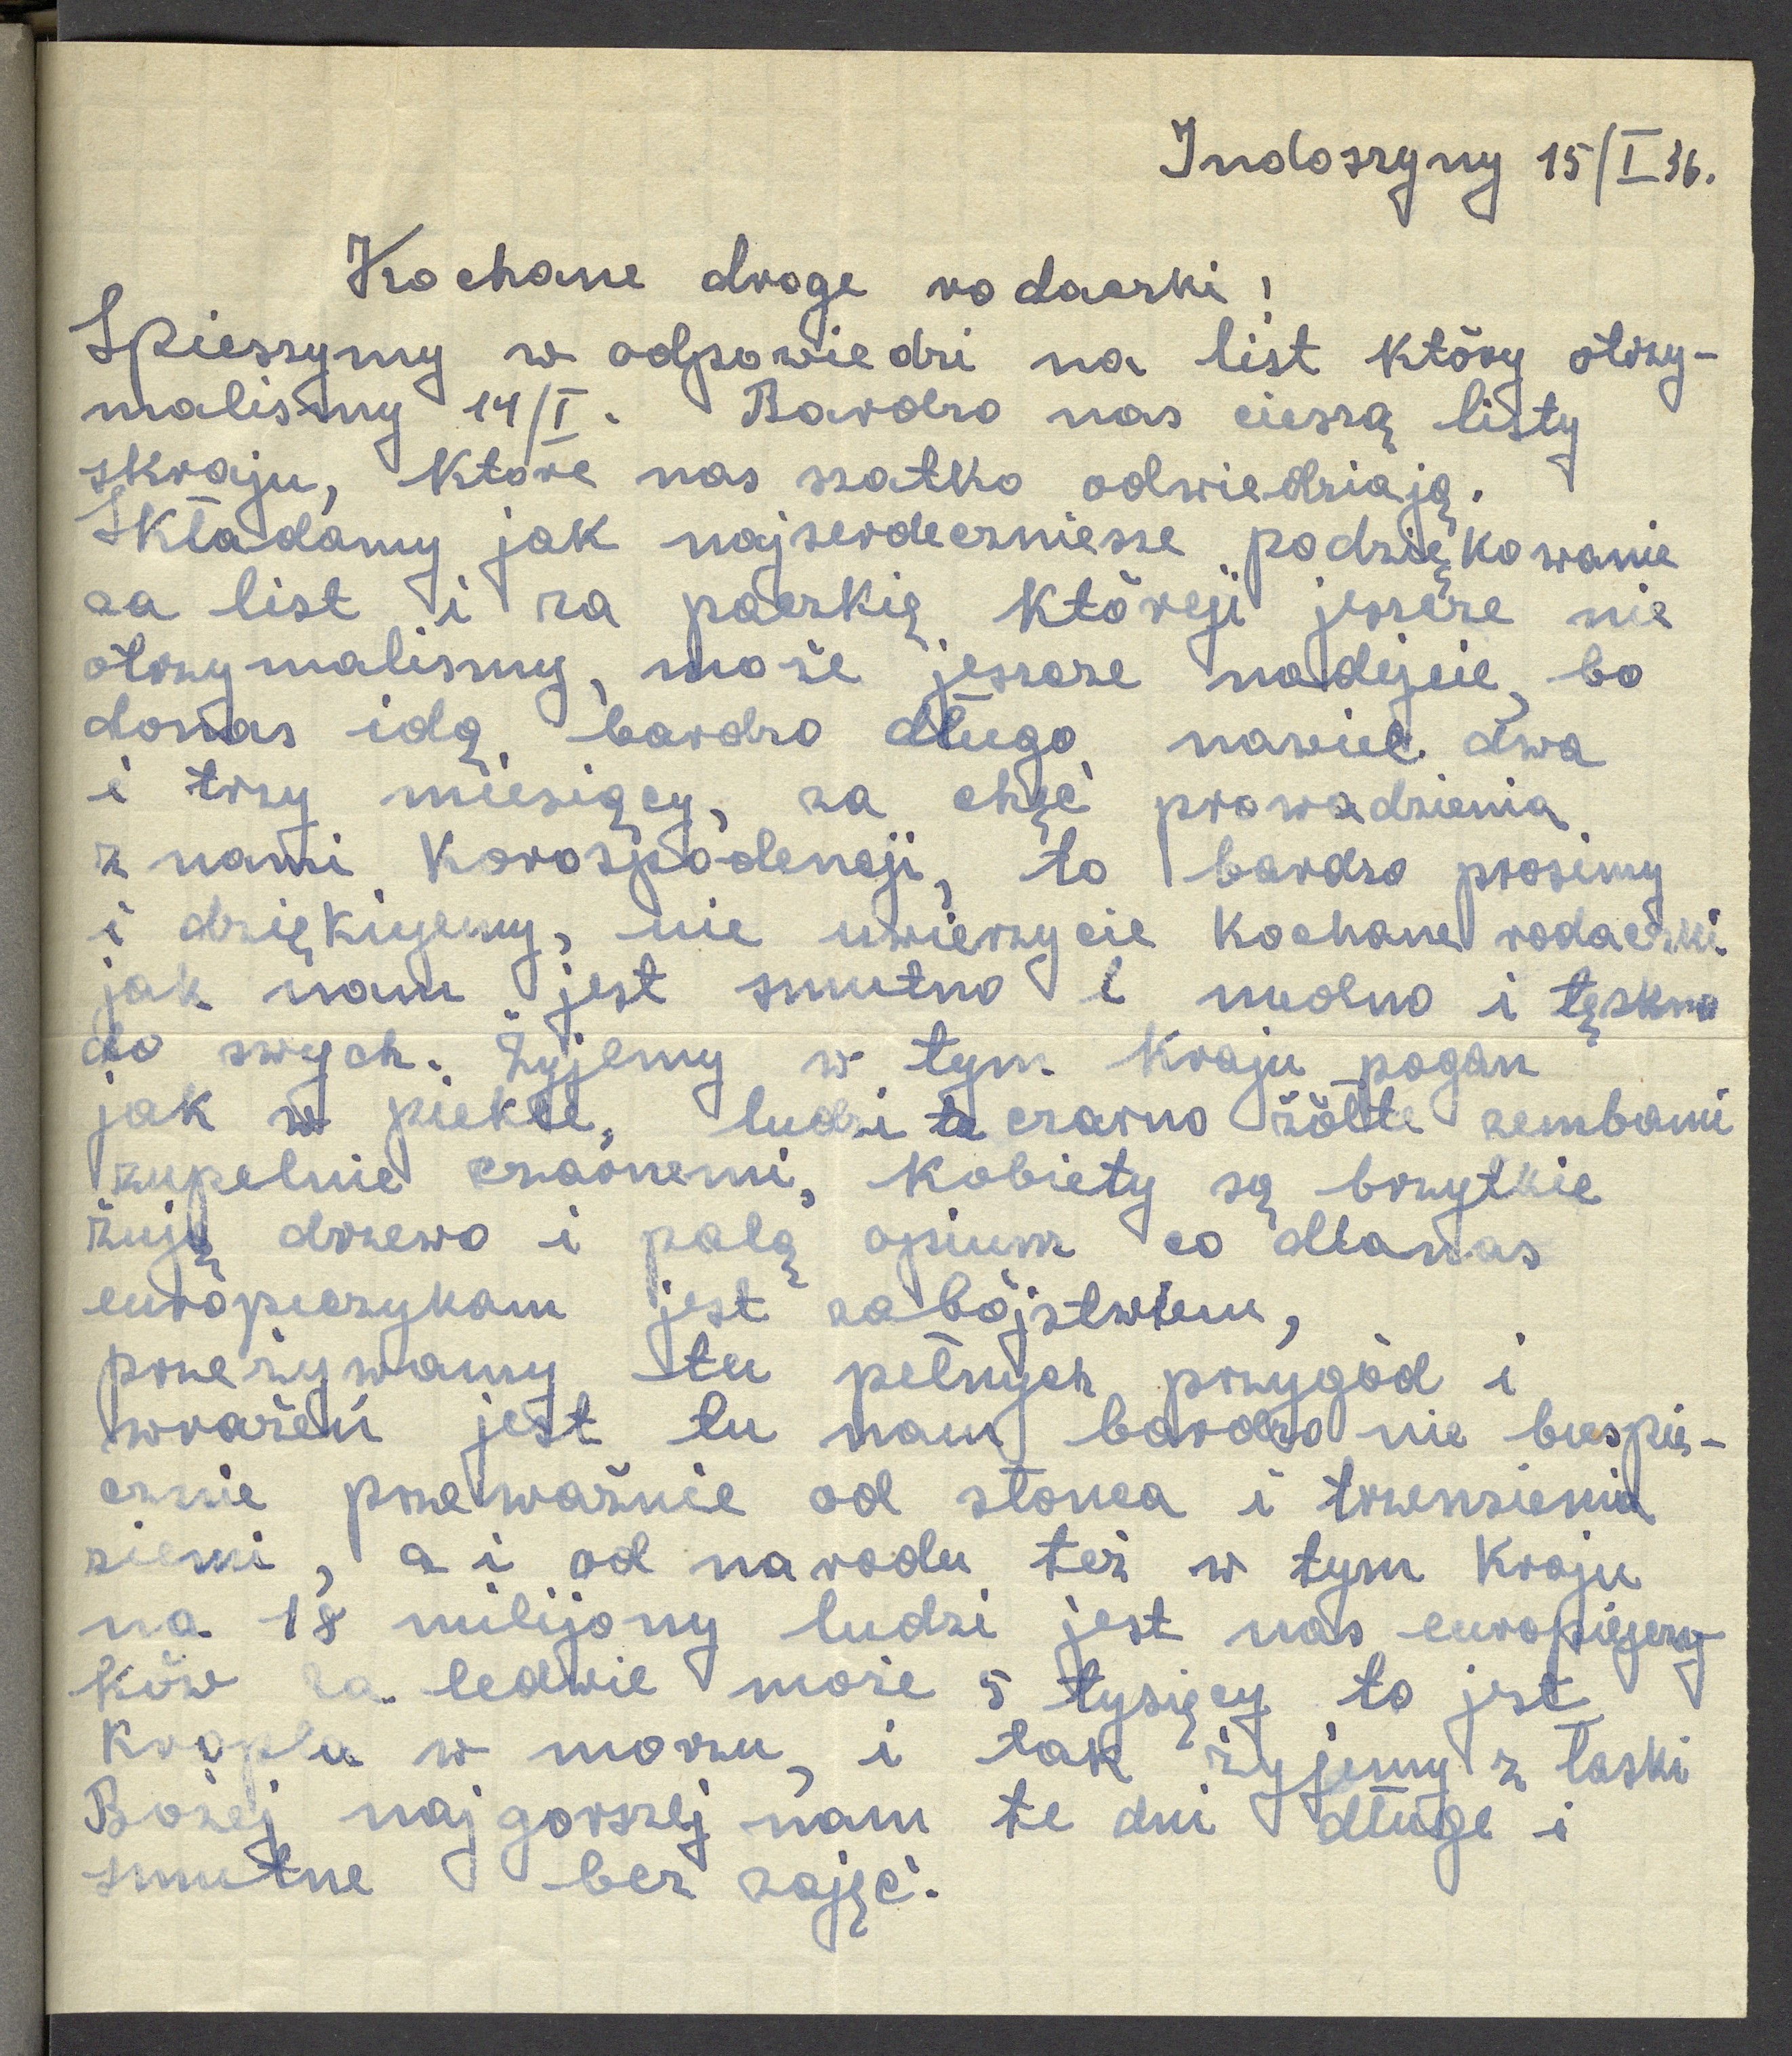 Indoszyny 15/I 36.
Kochane droge rodaczki!
Spieszymy w odpowiedzi na list który otrzy-
malismy 14/I. Bardzo nas cieszą listy
zkraju, ktore nas rzatko odwiedziają.
Składamy jak najserdeczniesze podziękowanie
za list i za paczkię któreji jeszcze nie
otrzymalismy, może jeszcze nadejcie, bo
donas idą bardzo długo nawiet dwa
i trzy miesięcy, za chęć prowadzienia
z nami korospodencji, to bardzo prosimy
i dziękiyemy, nie uwierzycie kochane rodaczki
jak nam jest smutno i nudno i tęskno
do swych. Żyjemy w tym kraju pogan
jak w piekle, ludzi te czarno żółte zembami
zupelnie czarnemi, kobiety są brzytkie
żują drzewo i palą opium co dlanas
europiczykam jest zabójstwiem,
przezywamy tu pełnych przygód i
wrażeń jest tu nam bardzo nie bespie-
cznie przeważnie od słonca i trzensienia
ziemi, a i od narodu też w tym kraju
na 18 milijony ludzi jest nas europiejczy
ków za ledwie może 5 tysięcy to jest
kropla w morzu, i tak żyjemy z łaski
Bożej najgorszej nam te dni długe i
smutne bez zajęć.